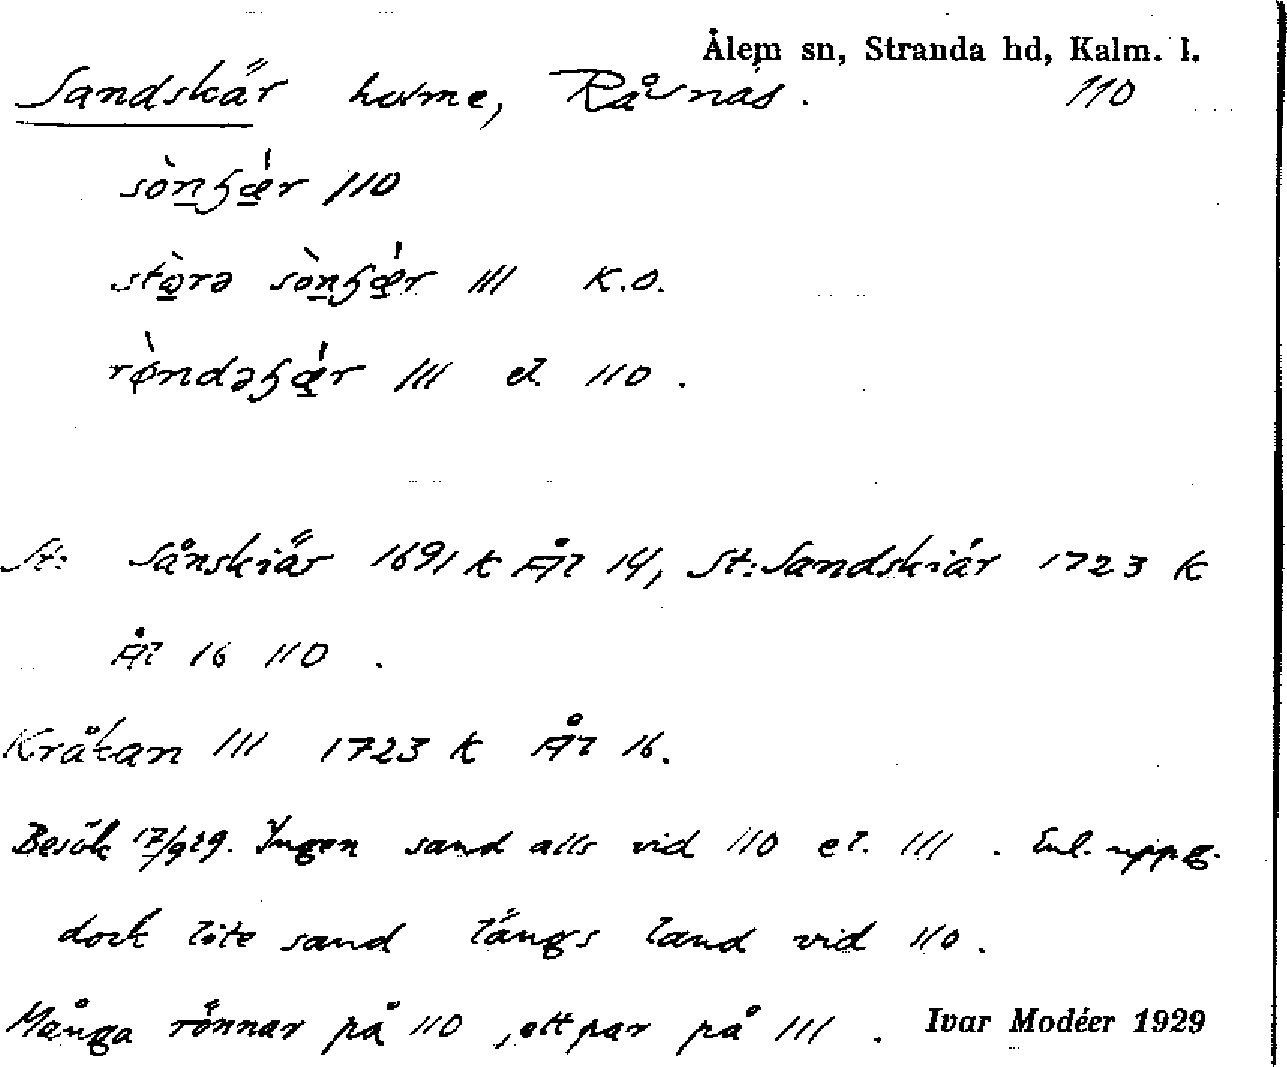 Ålem sn, Stranda hd, Kalm. l.
Sandskär holme, Råsnäs. 110
110
111 K.O.
111 el. 110.
St: Sånskiär 1691 k Ål 14, St: Sandskiär 1723 k
Ål 16 110.
Kråkan 111 1723 k Ål 16.
Besök 17/9 29. Ingen sand alls vid 110 el. 111. Enl. uppg.
dock lite sand längs land vid 110.
Många rönnar på 110, ett par på 111. Ivar Modéer 1929